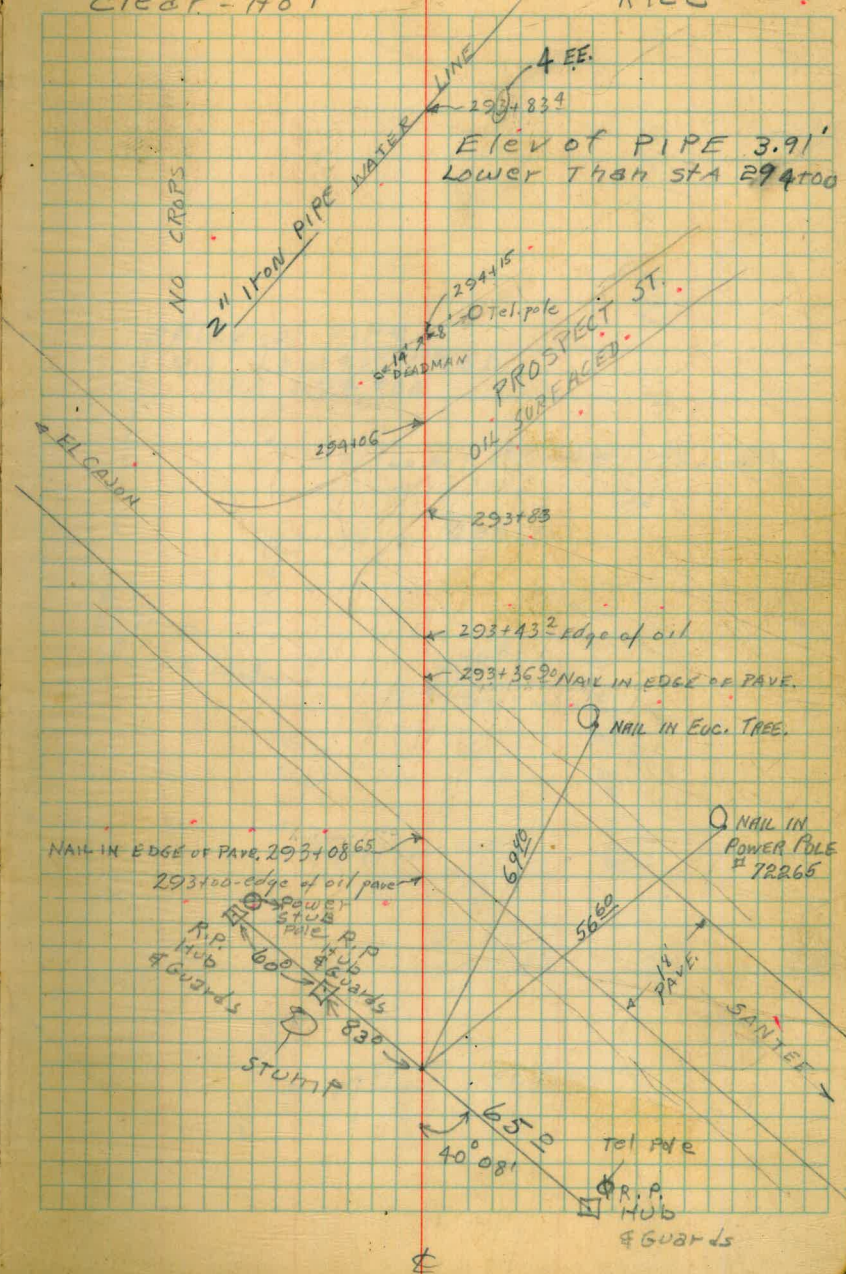 Clear - Hot
4 EE.
293+83⁴
Elev of PIPE 3.91'
Lower Than StA 294+00
NO CROPS
2" IRON PIPE WATER LINE
294+15
Tel. pole
14'
68'
DEADMAN
PROSPECT ST.
OIL SURFACED
294+06
EL CAJON
293+83
293+43² Edge of oil
293+36⁹⁰ NAIL IN EDGE OF PAVE.
NAIL IN EUC. TREE.
NAIL IN
POWER POLE
# 72265
NAIL IN EDGE OF PAVE. 293+08⁶⁵
293+00 - edge of oil pave
69⁴⁰
56⁶⁰
Power
Stub
Pole
R.P.
Hub
& Guards
60⁰
R.P.
Hub
& Guards
83⁰
18'
PAVE.
SANTEE
STUMP
65⁰
40° 08'
Tel Pole
R.P.
HUB
& Guards
℄